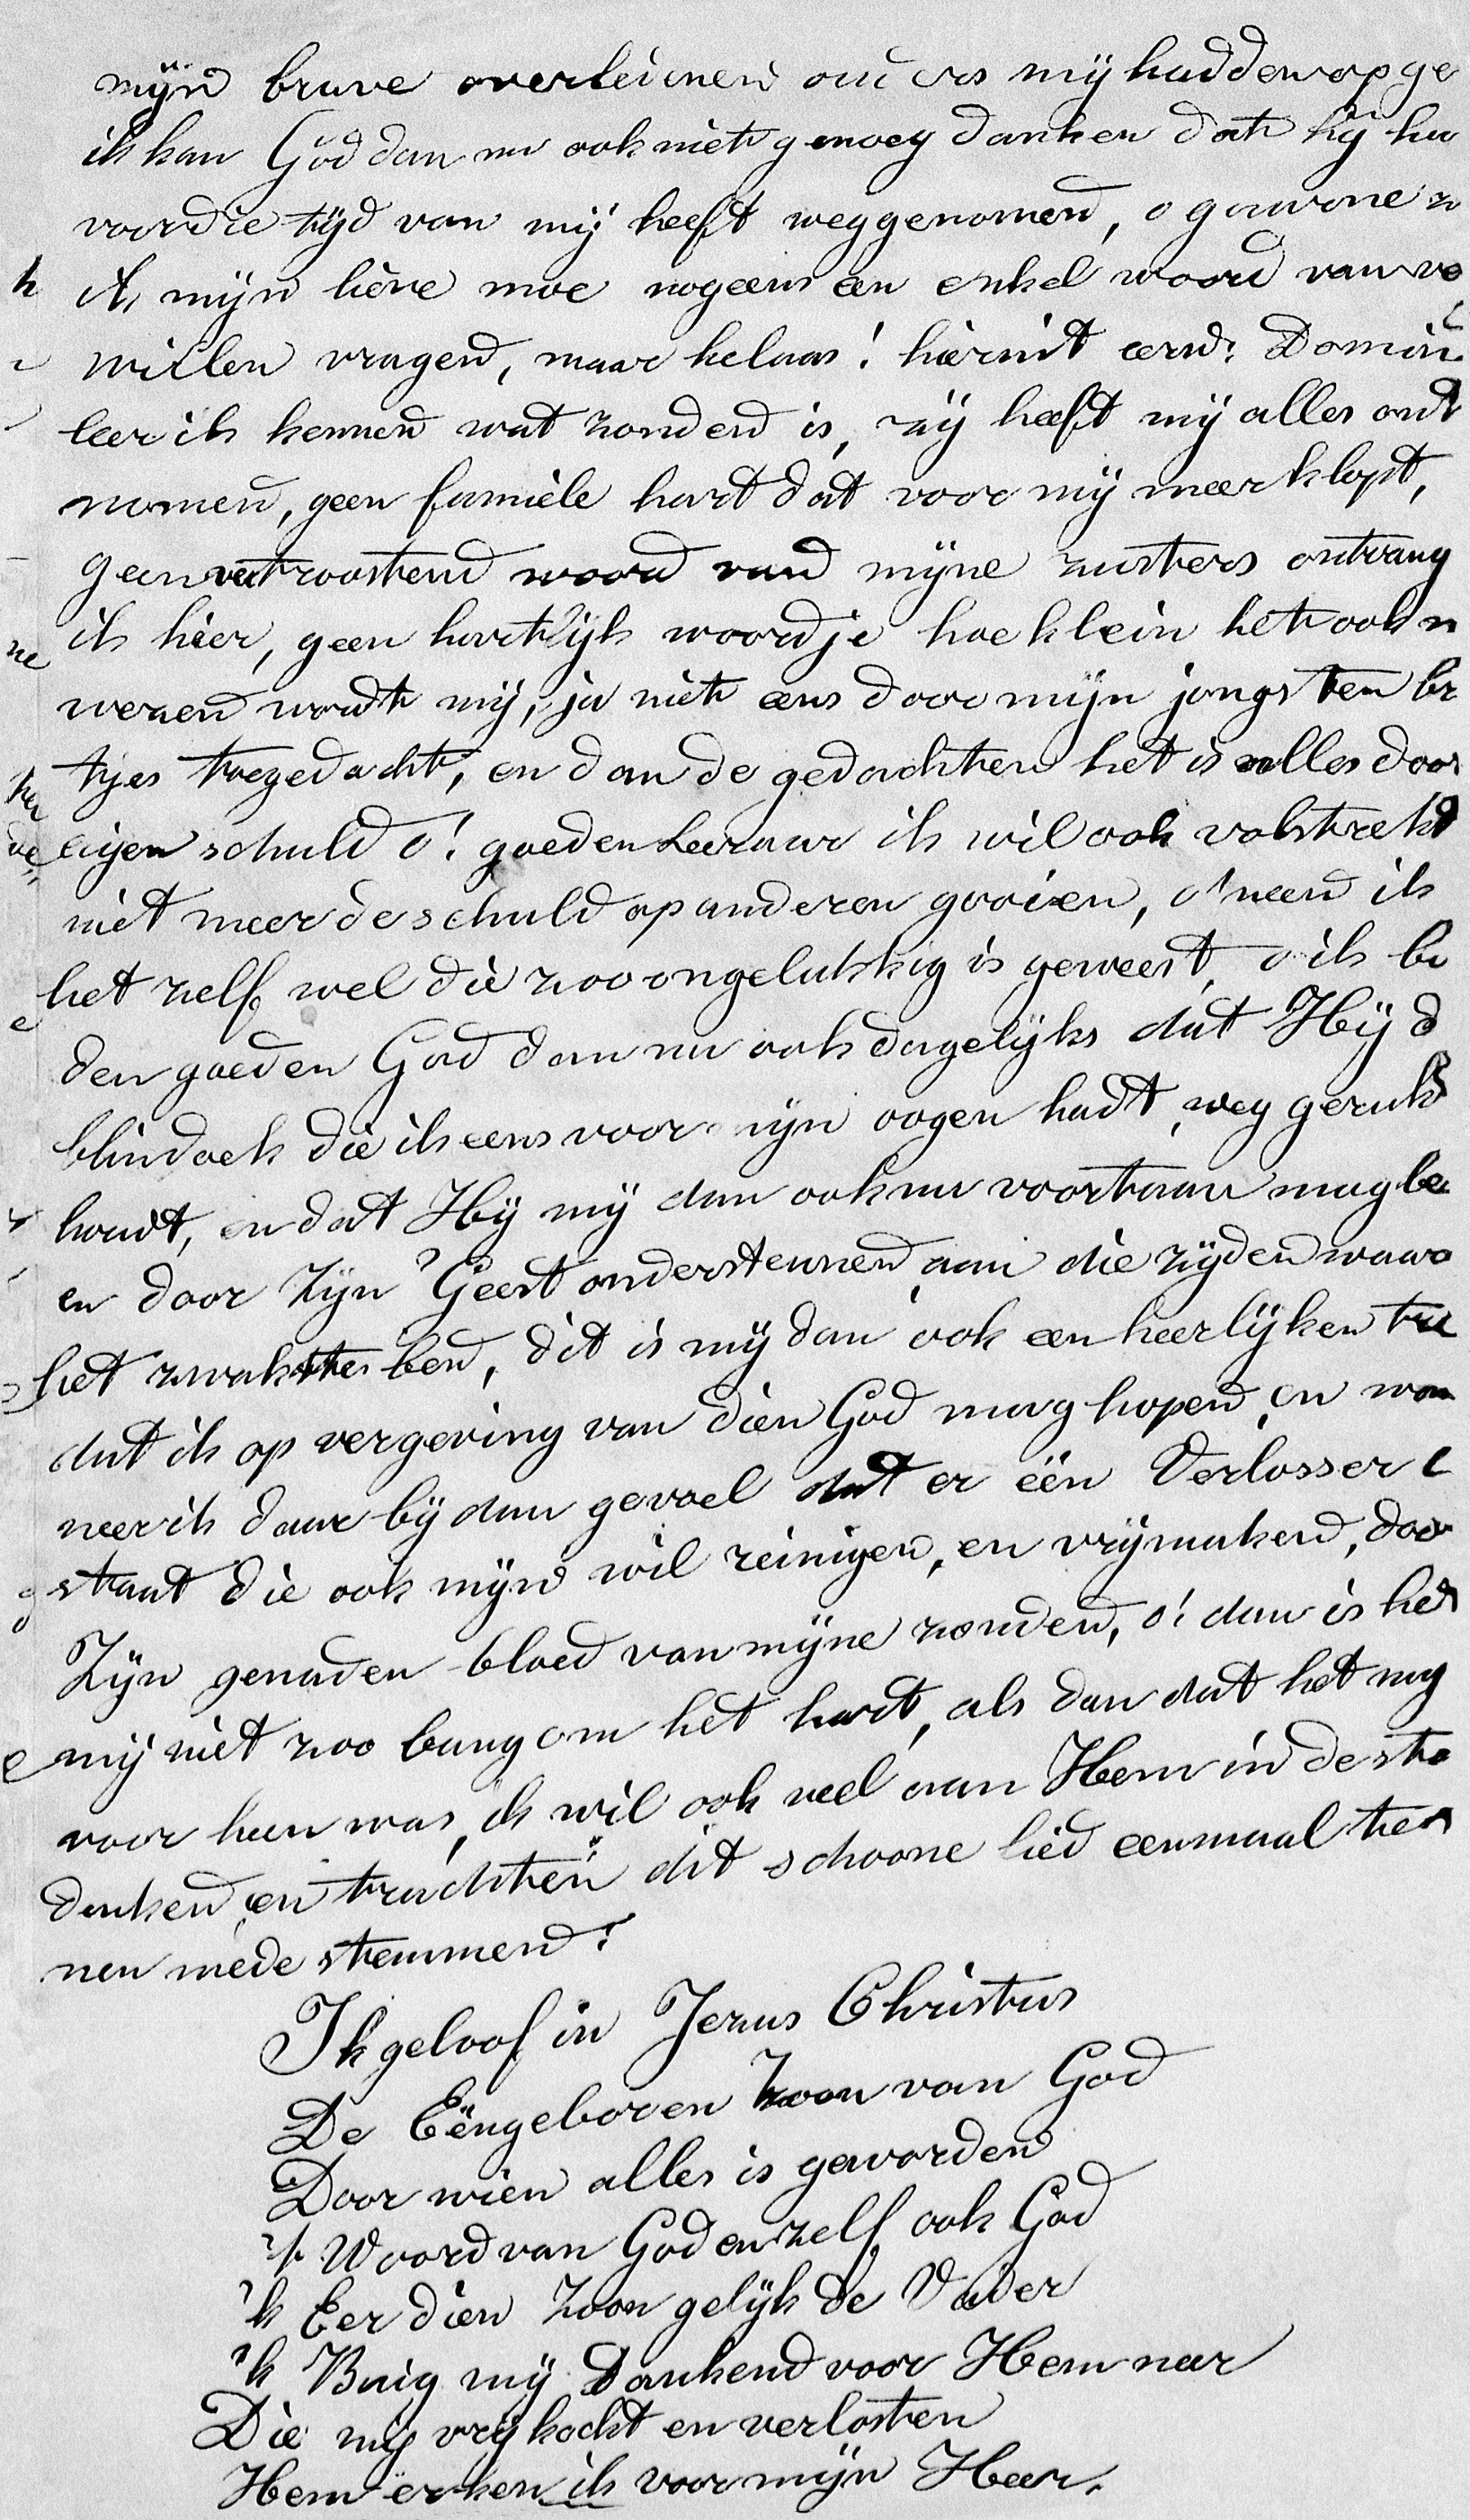 mijn brave overleidnen ouders mij hadden op ge
ik kan God dan nu ook niet genoeg danken dat hij ha
voor die tijd van mij heeft weggenomen, o gaarne zo
ik mijn lieve moe nog eens een enkel woord van ve
willen vragen, maar helaas! hieruit eerw: Domin
leer ik kennen wat zonden is, zij heeft mij alles ont
nomen, geen famiele hart dat voor mij meer klopt,
geen vertroostend woord van mijne zusters ontvang
ik hier, geen hartlijk woordje hoe klein het ook m
wezen wordt mij, ja niet eens door mijn jongsten br
tjes toegedacht, en dan de gedachten het is alles door
eigen schuld o! goeden Leeraar ik wil ook volstrekt
niet meer de schuld op anderen gooien, o neen ik
het zelf wel die zoo ongelukkig is geweest, o ik bi
den goeden God dan nu ook dagelijks dat Hij d
blindoek die ik eens voor mijn oogen hadt, weg geruk
houdt, en dat Hij mij dan ook nu voortaan mag be
en door Zijn Geest ondersteunen aan die zijden waar
het zwakste ben, dit is mij dan ook een heerlijken tro
dat ik op vergeving van dien God mag hopen, en wan
neer ik daar bij dan gevoel dat er één Verlosser
staat die ook mijn wil reinigen, en vrijmaken, door
Zijn genaden bloed van mijne zonden, o! dan is het
mij niet zoo bang om het hart, als dan dat het nog
voor heen was, ik wil ook veel aan Hem in de
denken, en trachten dit schoone lied eenmaal
nen mede stemmen!
Ik geloof in Jezus Christus
De Eëngeboren Zoon van God
Door wien alles is geworden
't Woord van God en zelf ook God
'k Eer dien Zoon gelijk de Vader
'k Buig mij Dankend voor Hem neer
Die mij vrij kocht en verlosten
Hem erken ik voor mijn Heer.